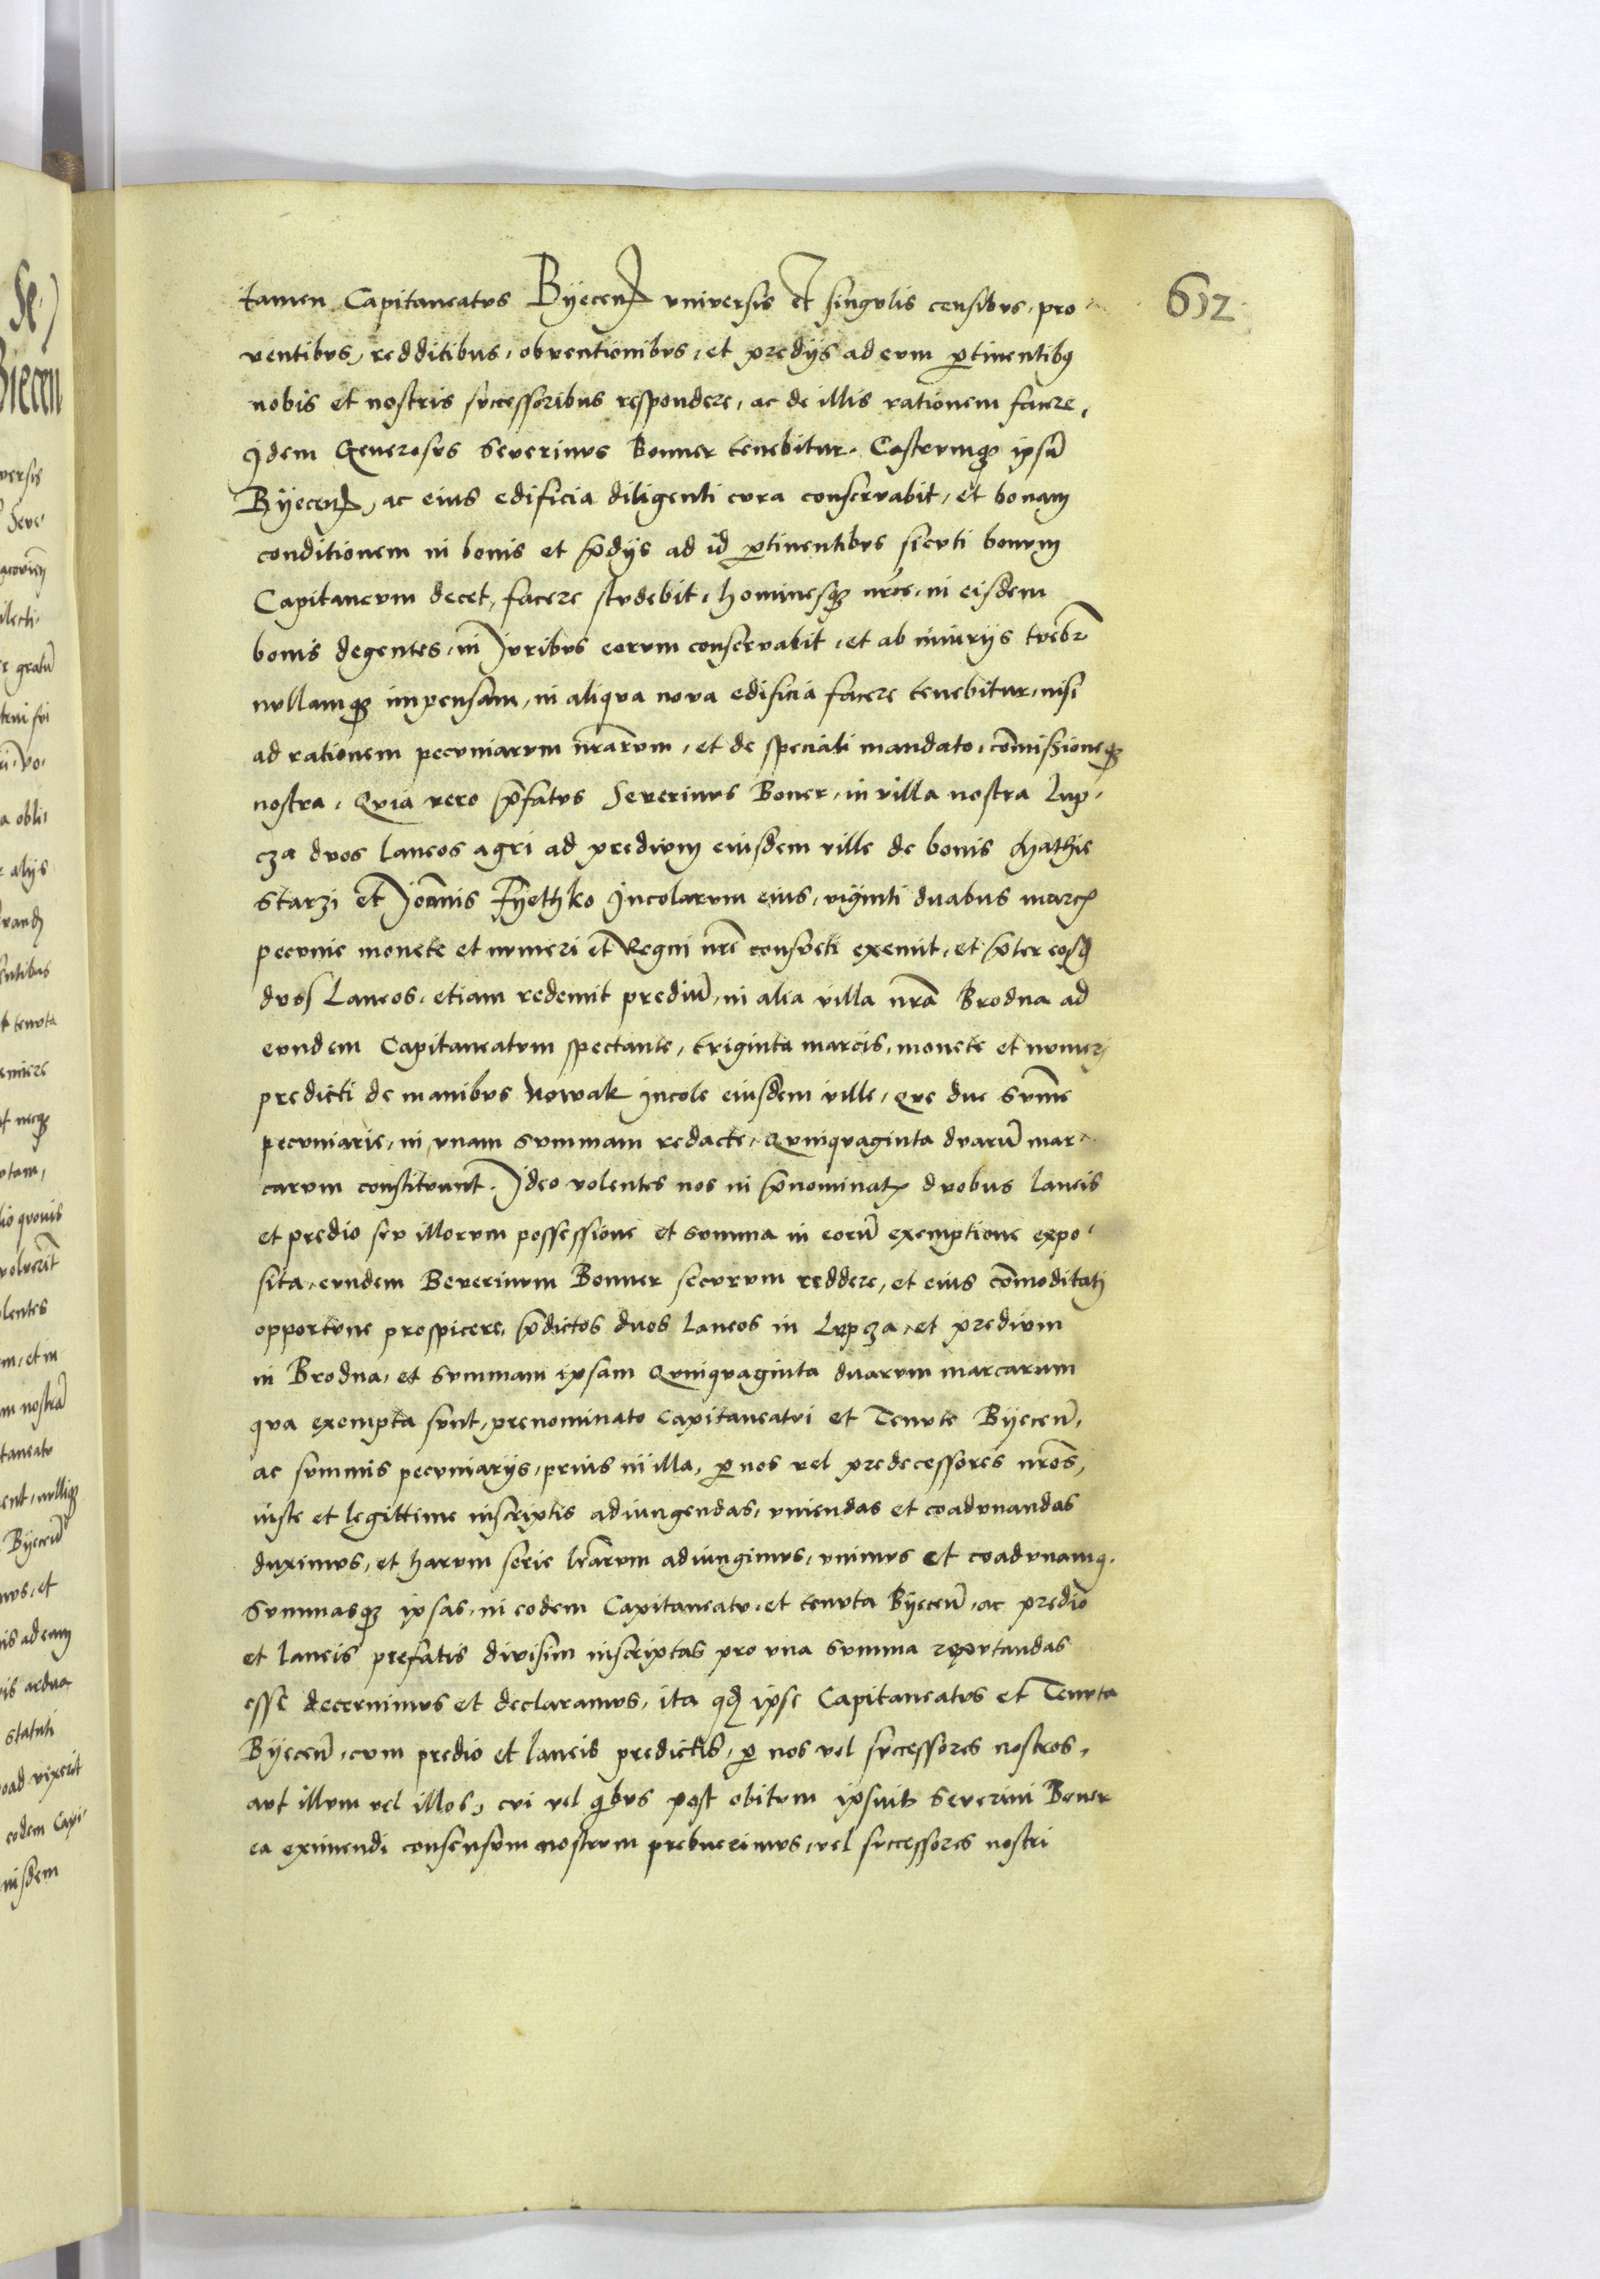 612
tamen Capitaneatus Byecen universis et singulis censibus, pro-
ventibus, redditibus, obventionibus, et predys ad eum ptinentibus
nobis et nostris successoribus respondere, ac de illis rationem facere,
Idem Generosus Severinus Bonner tenebitur. Castrumq ipsū
Byecen, ac eius edificia diligenti cura conservabit, et bonam
conditionem in bonis et p̄dys ad id ptinentibus sicuti bonum
Capitaneum decet, facere studebit, hominesq nr̄os, in eisdem
bonis degentes, in Juribus eorum conservabit, et ab iniurys tuebr̄
nullamq impensam, in aliqua nova edificia facere tenebitur, nisi
ad rationem pecuniarum nr̄arum, et de speciali mandato, com̄issioneq
nostra. Quia vero p̄fatus Severinus Boner, in villa nostra Lup-
cza duos laneos agri ad predium eiusdem ville de bonis Mathie
Starzi et Joan̄is Fyethko Incolarum eius, viginti duabus marc
pecunie monete et numeri et Regni nr̄i consueti exemit, et p̄ter eosd
duos Laneos, etiam redemit prediū, in alia villa nr̄a Brodna ad
eundem Capitaneatum spectante, triginta marcis, monete et numeri
predicti de manibus Nowak incole eiusdem ville, Que due sum̄e
pecuniarie, in unam summam redacte, Quinquaginta duarū mar-
carum constituunt. Ideo volentes nos in p̄nominat duobus laneis
et predio seu illorum possessione et summa in eorū exemptione expo-
sita, eundem Beverinum Bonner securum reddere, et eius com̄oditati
opportune prospicere, p̄dictos duos laneos in Lupcza, et predium
in Brodna, et summam ipsam Quinquaginta duarum marcarum
qua exempta sunt, prenominato Capitaneatui et Tenute Byecen̄,
ac summis pecuniarys, prius in illa, p nos vel predecessores nr̄os,
iuste et legittime inscriptis adiungendas, uniendas et coadunandas
duximus, et harum serie lr̄arum adiungimus, unimus et coadunamq.
Summasq ipsas, in eodem Capitaneatu, et tenuta Byecen̄, ac predio
et laneis prefatis divisim inscriptas pro una summa reputandas
esse decernimus et declaramus, ita qd ipse Capitaneatus et Tenuta
Byecen̄, cum predio et laneis predictis, p nos vel successores nostros,
aut illum vel illos, cui vel qibus post obitum ipsius Severini Boner
ea eximendi consensum nostrum prebuerimus, vel successores nostri